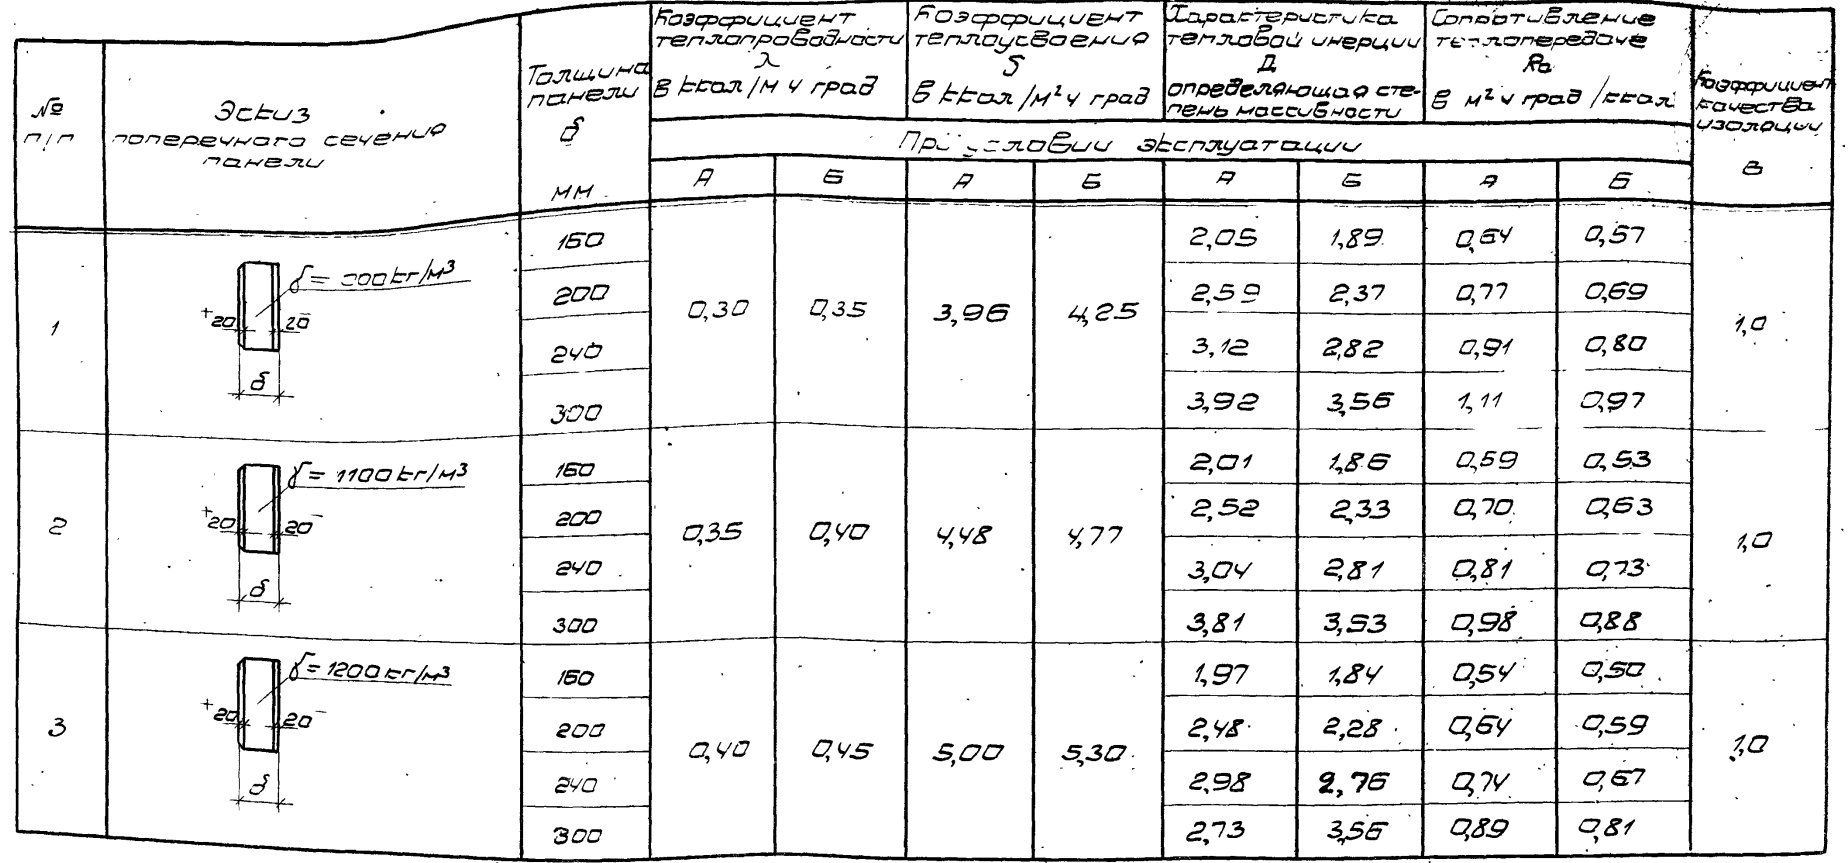 № п/п
Эскиз
поперечного сечения
панели
Толщина
панели
δ
мм
Коэффициент
теплопроводности
λ
в ккал/м ч град
Коэффициент
теплоусвоения
S
в ккал/м² ч град
Характеристика
тепловой инерции
Д
определяющая сте-
пень массивности
Сопротивление
теплопередаче
Rо
в м² ч град/ккал
Коэффициент
качества
изоляции
В
При условии эксплуатации
А Б А Б А Б А Б
1
γ= кг/м³
+20 20-
δ
0,30 0,35 3,96 4,25
160 2,05 1,89 0,64 0,57
200 2,59 2,37 0,77 0,69
240 3,12 2,82 0,91 0,80
300 3,92 3,56 1,11 0,97
1,0
2
γ= 1100 кг/м³
+20 20-
δ
0,35 0,40 4,48 4,77
160 2,01 1,86 0,59 0,53
200 2,52 2,33 0,70 0,63
240 3,04 2,81 0,81 0,73
300 3,81 3,53 0,98 0,88
1,0
3
γ= 1200 кг/м³
+20 20-
δ
0,40 0,45 5,00 5,30
160 1,97 1,84 0,54 0,50
200 2,48 2,28 0,64 0,59
240 2,98 2,76 0,74 0,67
300 2,73 3,56 0,89 0,81
1,0